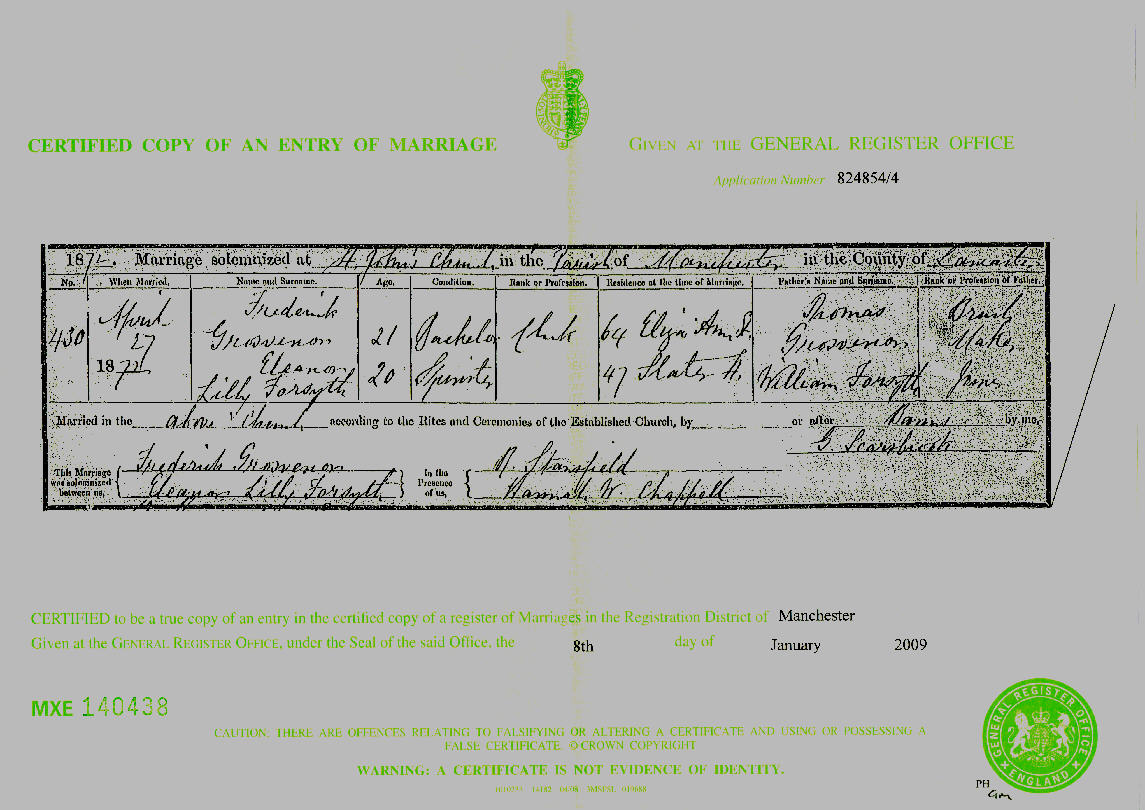 CERTIFIED COPY OF AN ENTRY OF MARRIAGE
GIVEN AT THE GENERAL REGISTER OFFICE
Application Number 824854/4
1872. Marriage solemnized at St. John's Church, in the Parish of Manchester in the County of Lancaster
No. When Married. Name and Surname. Age. Condition. Rank or Profession. Residence at the time of Marriage. Father's Name and Surname. Rank or Profession of Father.
430 April 27 1872 Frederick Grosvenor 21 Bachelor Clerk 64 Eliza Ann St. Thomas Grosvenor Brush Maker
Eleanor Lilly Forsyth 20 Spinster 47 Slater St. William Forsyth
Married in the above Church, according to the Rites and Ceremonies of the Established Church, by or after Banns by me,
G.
This Marriage was solemnized between us, Frederick Grosvenor
Eleanor Lilly Forsyth
In the Presence of us, Stansfield
Hannah W Chappell
CERTIFIED to be a true copy of an entry in the certified copy of a register of Marriages in the Registration District of Manchester
Given at the GENERAL REGISTER OFFICE, under the Seal of the said Office, the 8th day of January 2009
MXE 140438
CAUTION: THERE ARE OFFENCES RELATING TO FALSIFYING OR ALTERING A CERTIFICATE AND USING OR POSSESSING A
FALSE CERTIFICATE. © CROWN COPYRIGHT
WARNING: A CERTIFICATE IS NOT EVIDENCE OF IDENTITY.
GENERAL REGISTER OFFICE
ENGLAND
PH